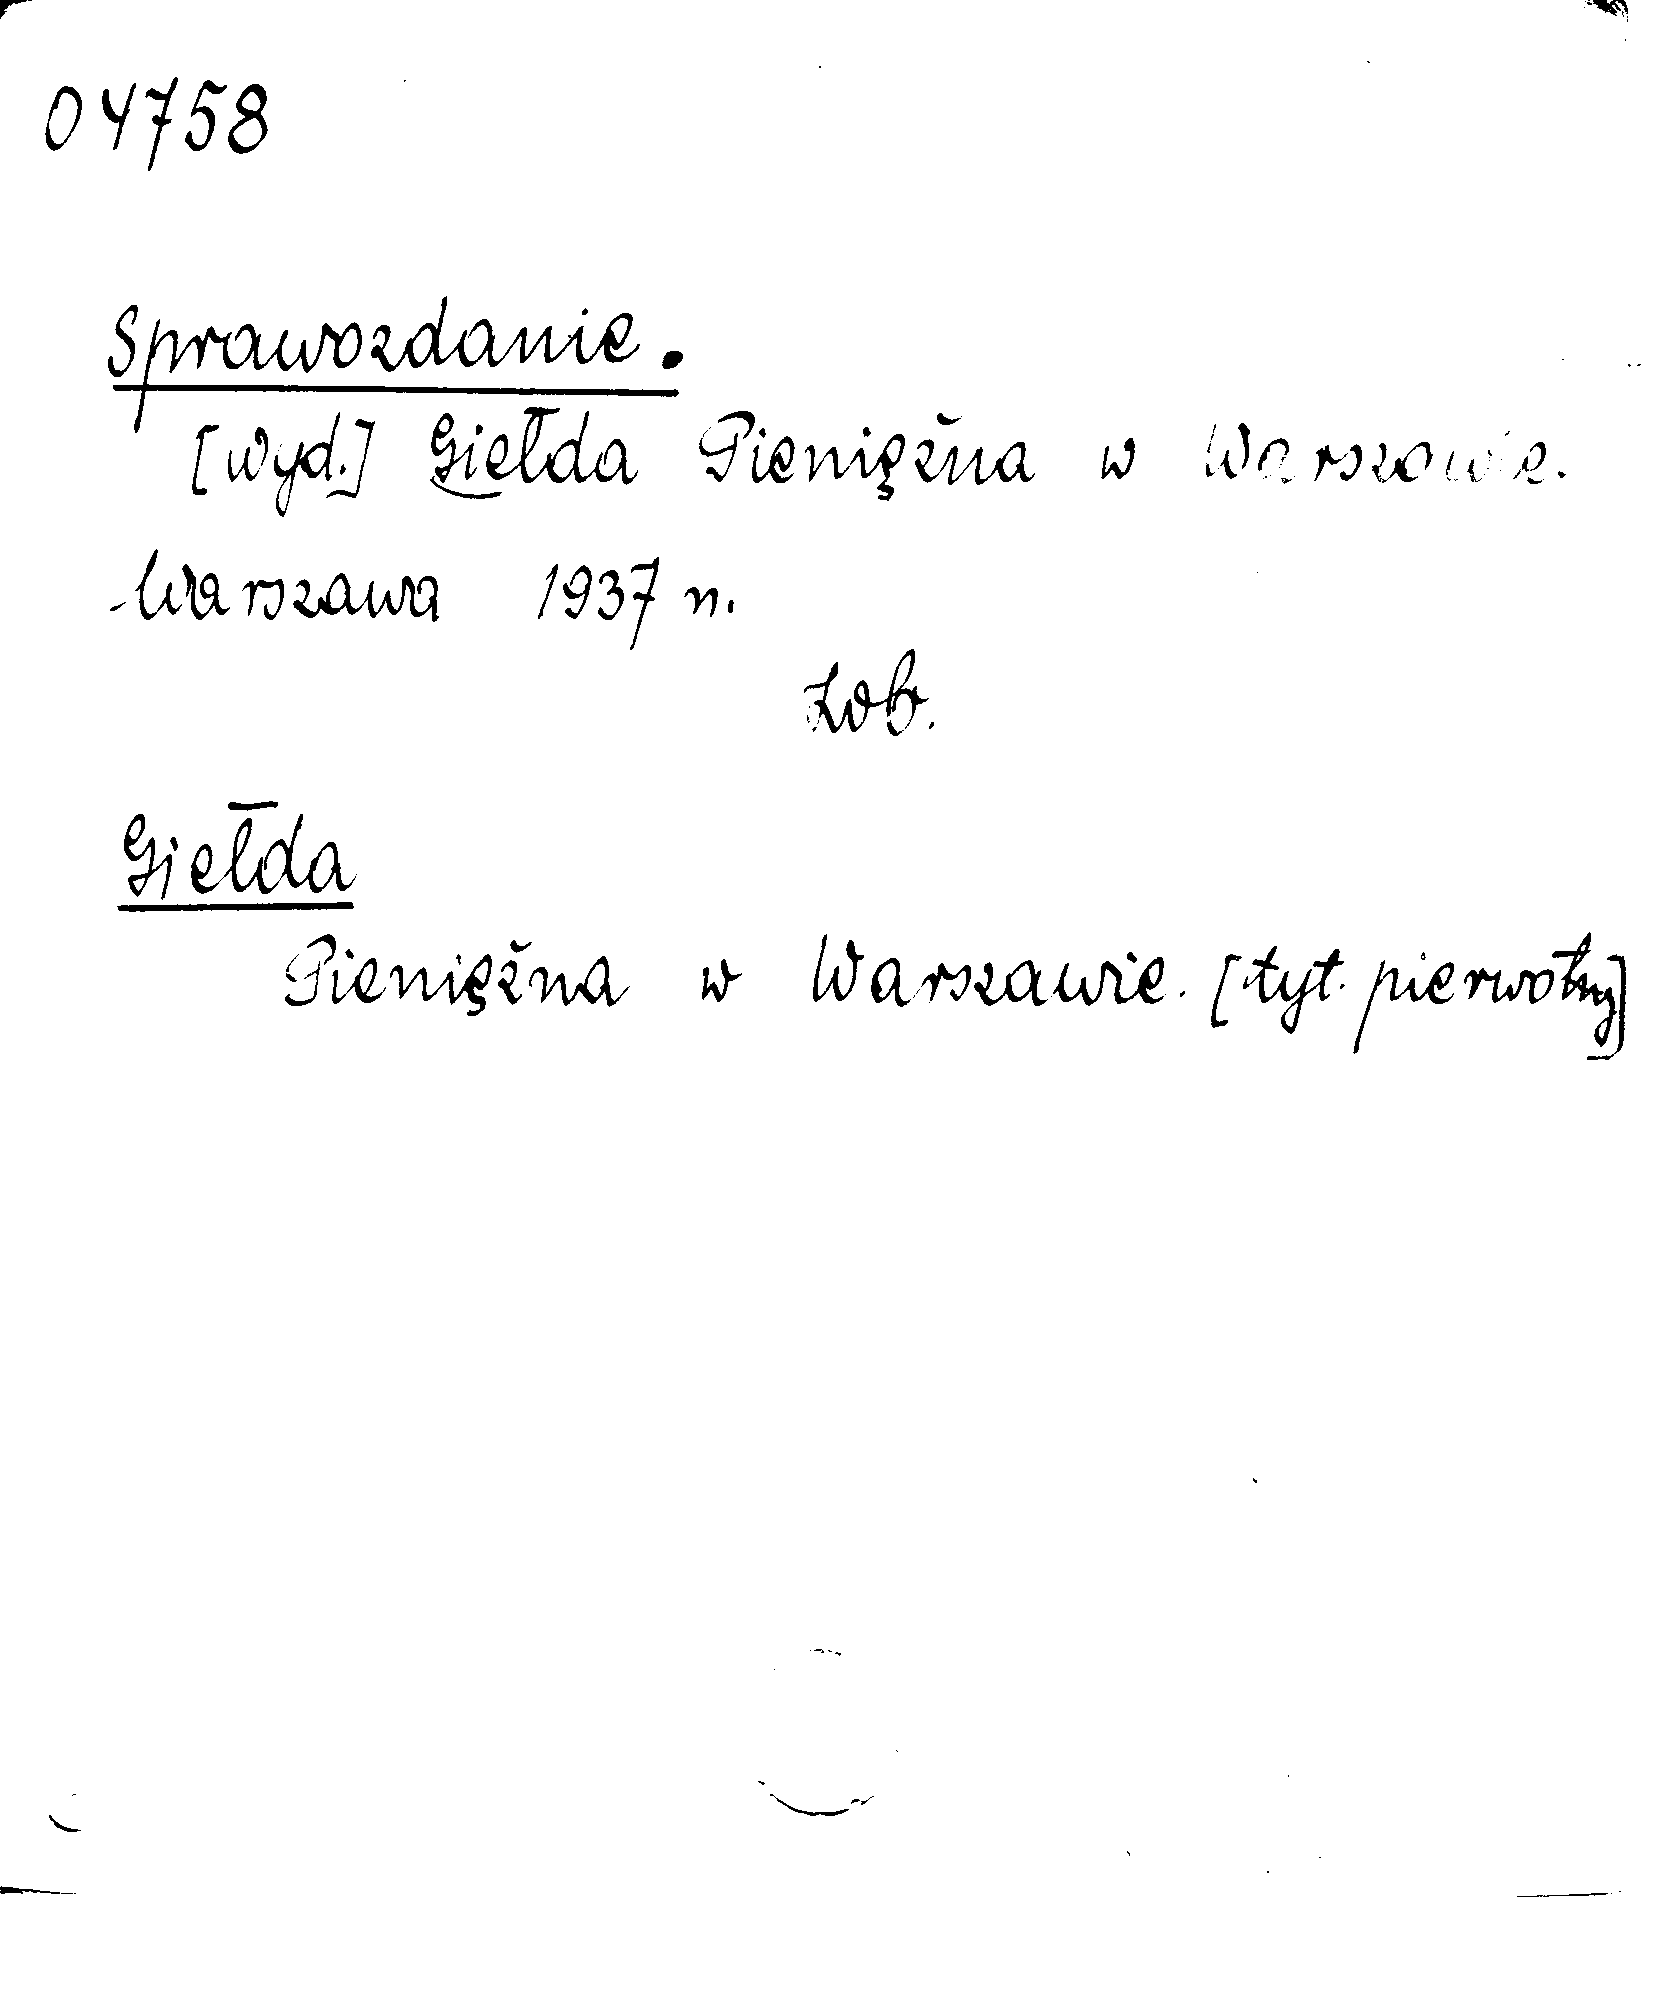 04758
Sprawozdanie.
[wyd.] Giełda Pieniężna w Warszawie.
Warszawa 1937 n.
Zob.
Giełda
Pieniężna w Warszawie. [tyt. pierwotny]